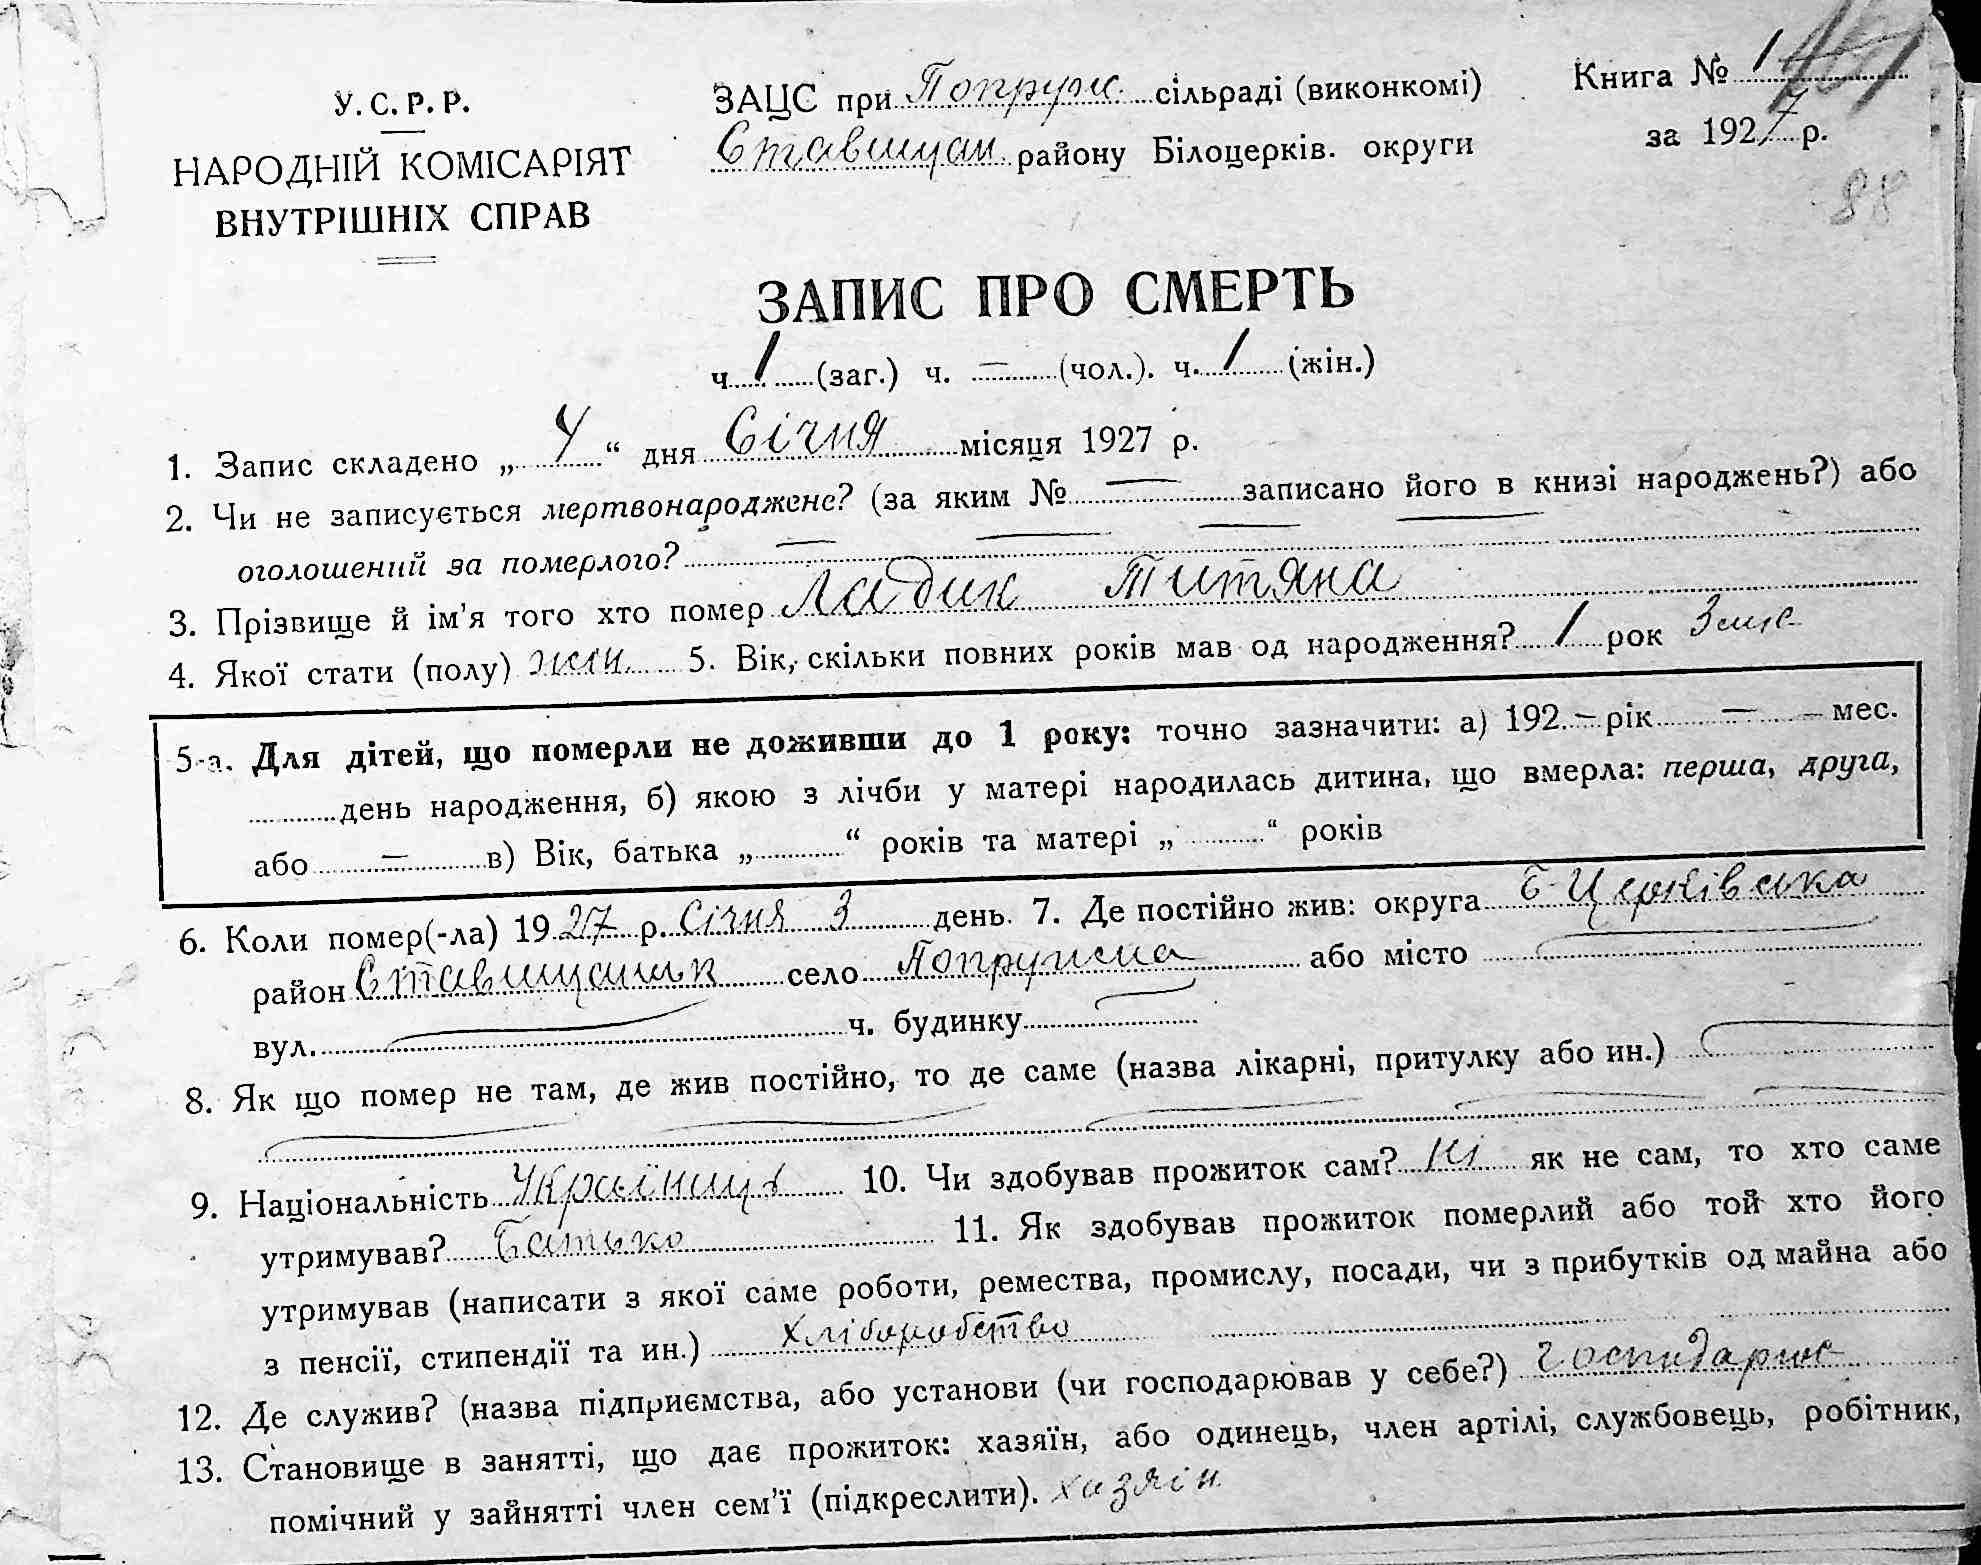 У. С. Р. Р.
НАРОДНІЙ КОМІСАРІЯТ
ВНУТРІШНІХ СПРАВ
ЗАЦС при Попруж. сільраді (виконкомі)
Ставищан. району Білоцерків. округи
Книга № 1
за 1927 р.
88
ЗАПИС ПРО СМЕРТЬ
ч. 1 (заг.) ч. — (чол.). ч. 1 (жін.)
1. Запис складено „ 4 “ дня Січня місяця 1927 р.
2. Чи не записується мертвонароджене? (за яким № — записано його в книзі народжень?) або
оголошений за померлого? —
3. Прізвище й ім'я того хто помер Ладик Титяна
4. Якої стати (полу) жін. 5. Вік, скільки повних років мав од народження? 1 рок 3 міс
5-а. Для дітей, що померли не доживши до 1 року: точно зазначити: а) 192 — рік — мес.
день народження, б) якою з лічби у матері народилась дитина, що вмерла: перша, друга,
або — в) Вік, батька „ “ років та матері „ “ років
6. Коли помер(-ла) 1927 р. Січня 3 день. 7. Де постійно жив: округа Б-Церківська
район Ставищанськ село Попружна або місто
вул. ч. будинку
8. Як що помер не там, де жив постійно, то де саме (назва лікарні, притулку або ин.)
9. Національність 10. Чи здобував прожиток сам? Ні як не сам, то хто саме
утримував? Батько 11. Як здобував прожиток померлий або той хто його
утримував (написати з якої саме роботи, ремества, промислу, посади, чи з прибутків од майна або
з пенсії, стипендії та ин.) хліборобство
12. Де служив? (назва підприємства, або установи (чи господарював у себе?)
13. Становище в занятті, що дає прожиток: хазяїн, або одинець, член артілі, службовець, робітник,
помічний у зайнятті член сем'ї (підкреслити). хазяїн